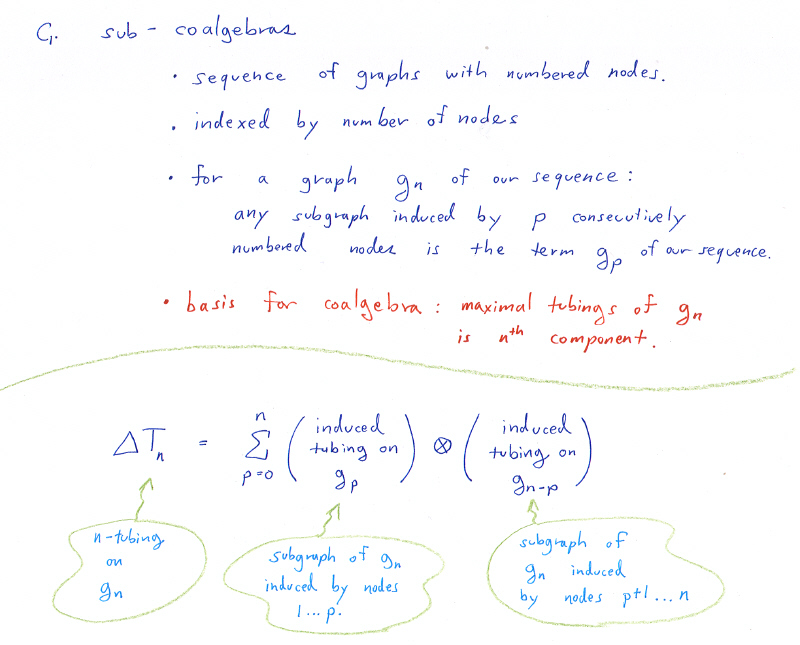 C. sub-coalgebras
• sequence of graphs with numbered nodes.
• indexed by number of nodes
• for a graph gₙ of our sequence:
any subgraph induced by p consecutively
numbered nodes is the term gₚ of our sequence.
• basis for coalgebra: maximal tubings of gₙ
is nᵗʰ component.
ΔTₙ = ∑ₚ₌₀ⁿ (induced tubing on gₚ) ⊗ (induced tubing on gₙ₋ₚ)
n-tubing
on
gₙ
subgraph of gₙ
induced by nodes
1...p.
subgraph of
gₙ induced
by nodes p+1...n